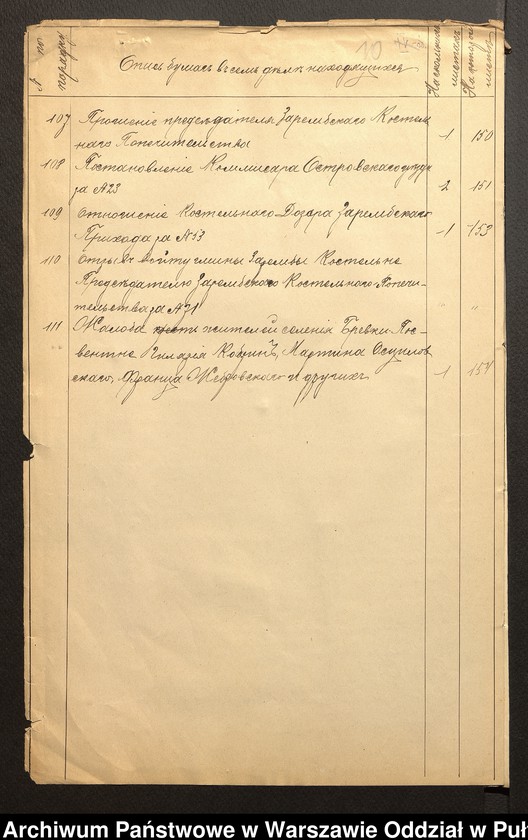 10
№ по порядку
Опись бумагъ въ семъ дѣлѣ находящихся
На сколькихъ листахъ
На которой листѣ
107 Прошеніе предсѣдателя Зарембскаго Костель
наго Попечительства 1 150
108 Постановленіе Коммисара Островскаго уѣзда
за №23 2 151
109 Отношеніе Костельнаго Дозора Зарембскаго
Прихода за №13 1 153
110 Отзывъ войту гмины Зарембы Костельне
Предсѣдателю Зарембскаго Костельнаго Попечи-
тельства за №31 " "
111 Жалоба жителей селенія Гревки
Мартина
скаго, Франца и другихъ 1 154
Archiwum Państwowe w Warszawie Oddział w Puł